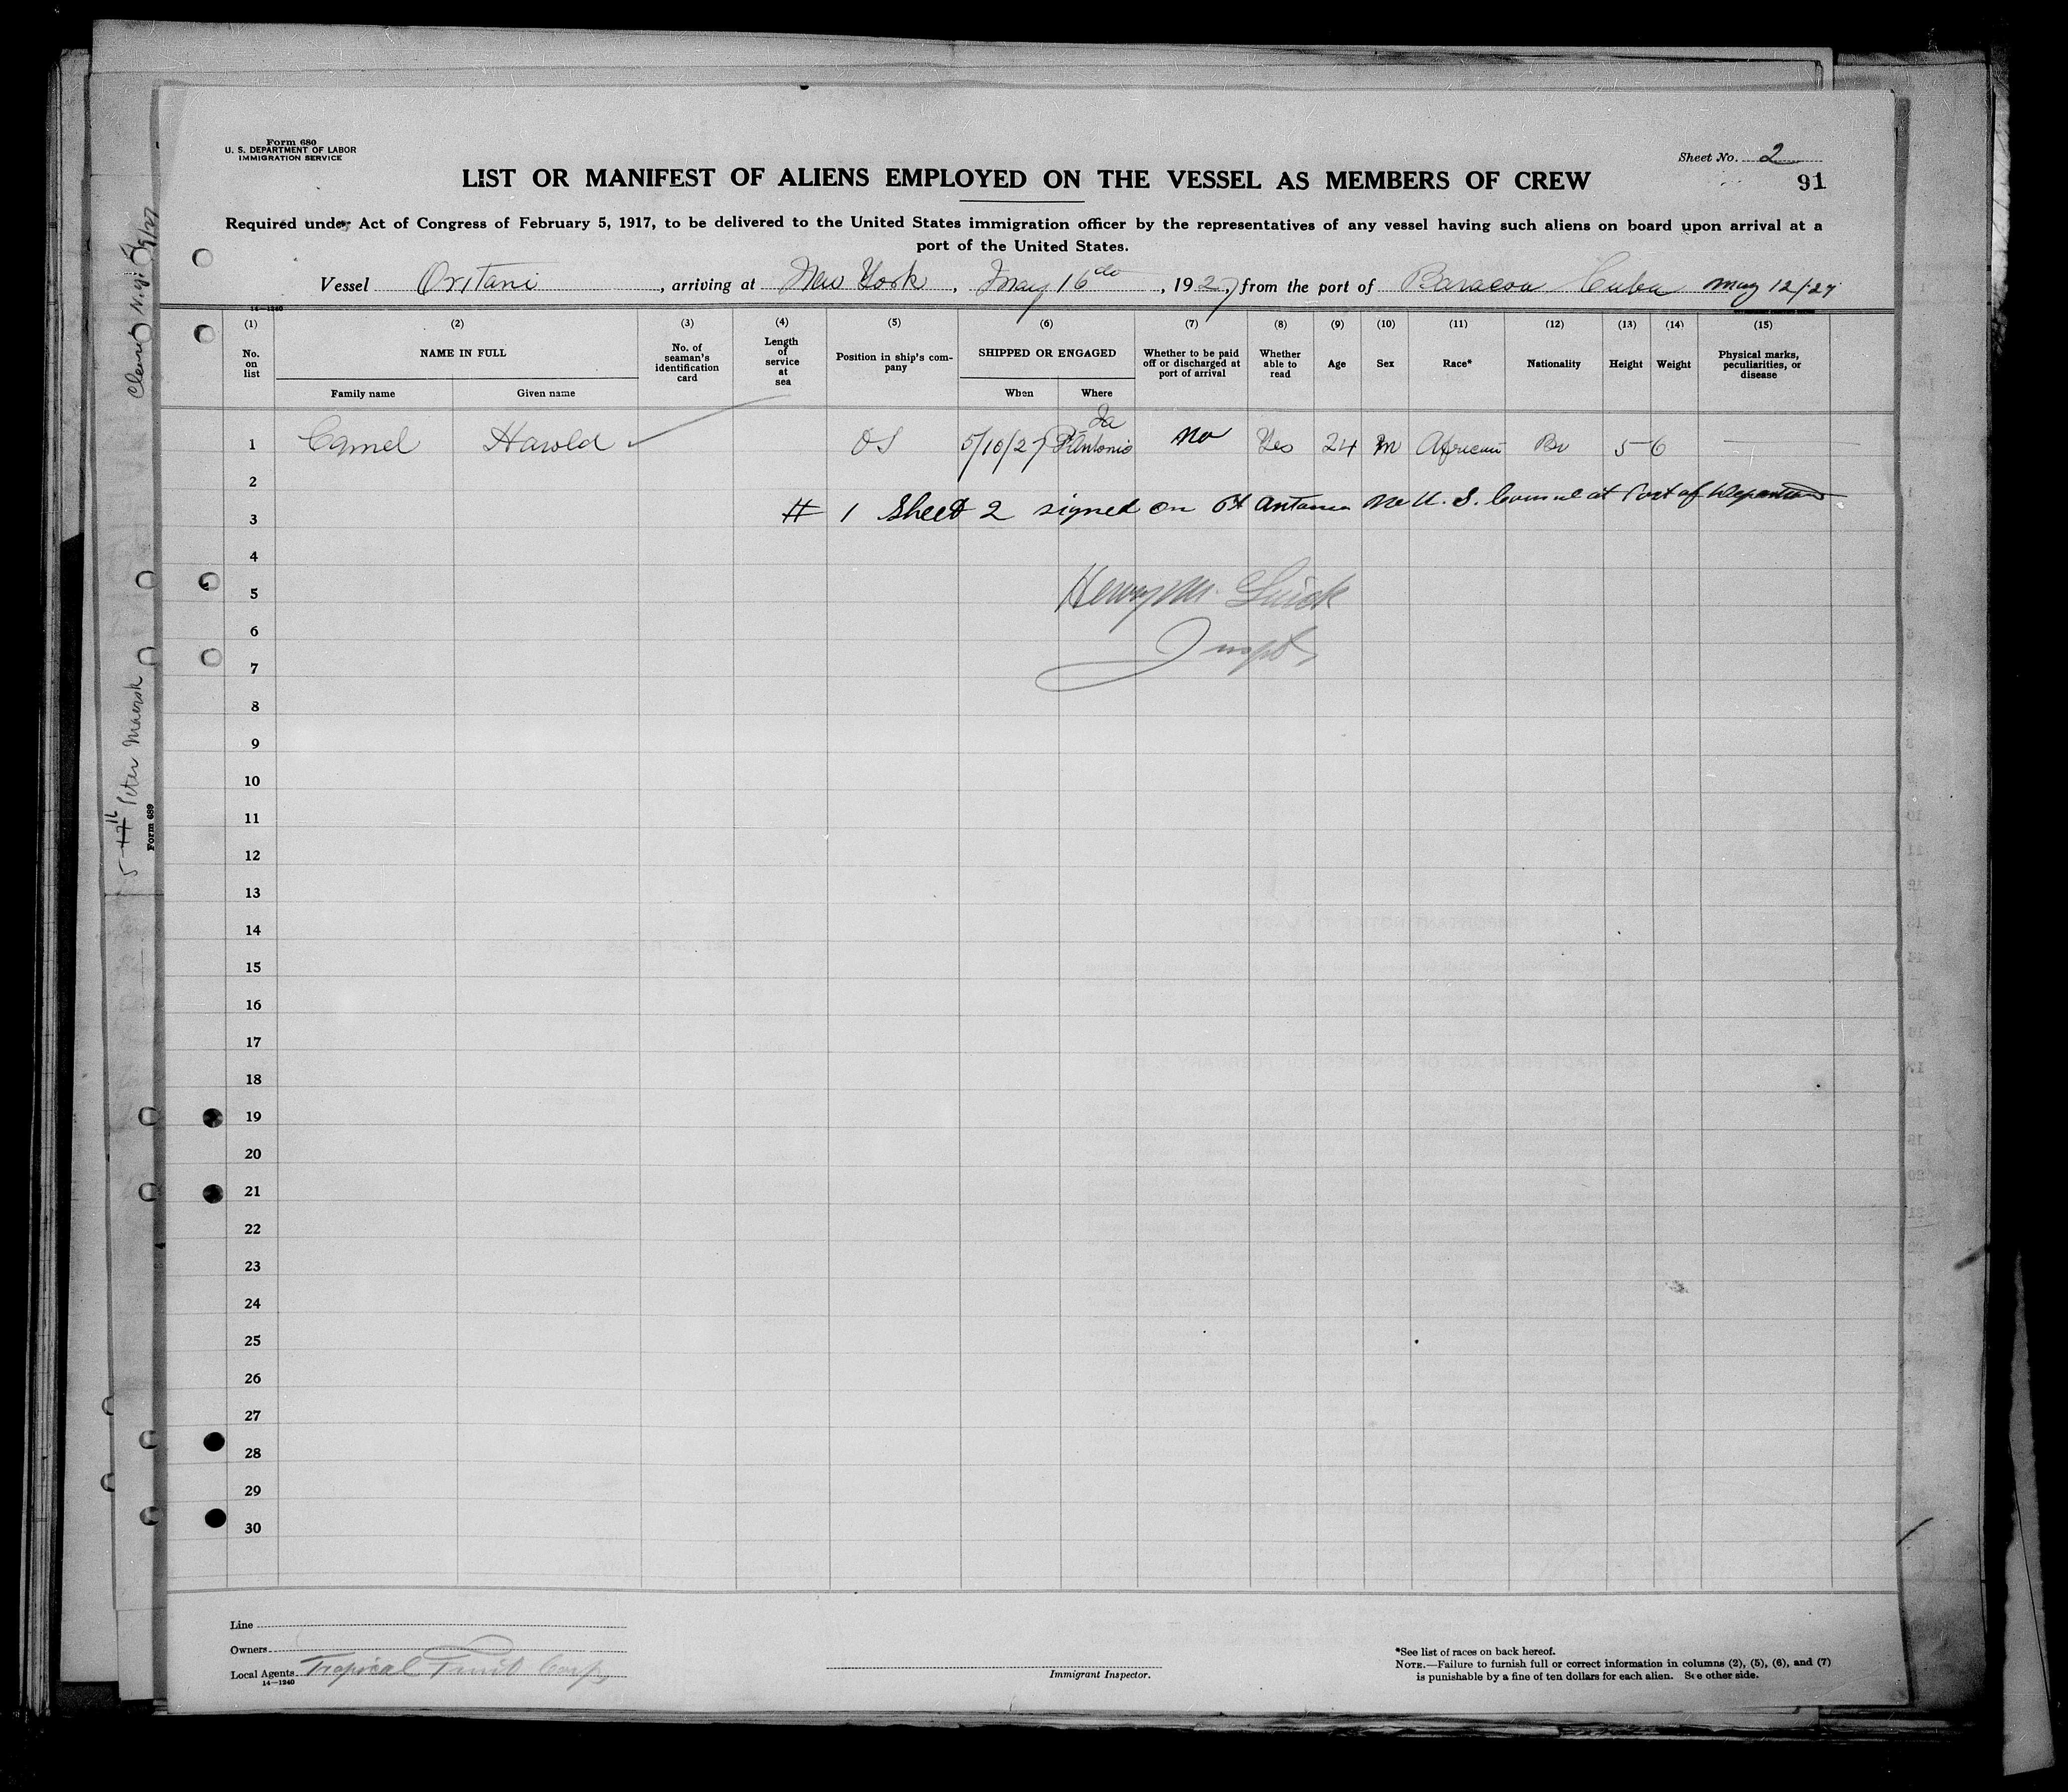 Form 680
U. S. DEPARTMENT OF LABOR
IMMIGRATION SERVICE
Sheet No. 2
91
LIST OR MANIFEST OF ALIENS EMPLOYED ON THE VESSEL AS MEMBERS OF CREW
Required under Act of Congress of February 5, 1917, to be delivered to the United States immigration officer by the representatives of any vessel having such aliens on board upon arrival at a
port of the United States.
Vessel Oritani, arriving at New York, May 16th, 1927, from the port of Baracoa Cuba May 12/27
14—1240
(1) (2) (3) (4) (5) (6) (7) (8) (9) (10) (11) (12) (13) (14) (15)
No. on list
NAME IN FULL
Family name
Given name
No. of seaman's identification card
Length of service at sea
Position in ship's company
SHIPPED OR ENGAGED
When
Where
Whether to be paid off or discharged at port of arrival
Whether able to read
Age
Sex
Race*
Nationality
Height
Weight
Physical marks, peculiarities, or disease
1 Camel Harold OS 5/10/27 Pt Antonio Ja No Yes 24 M African Br 5 6
2
3 # 1 Sheet 2 signed on Pt Antonio No U. S. Consul at Port of Departure
4
5 Henry M.
6
7 Inspt
8
9
10
11
12
13
14
15
16
17
18
19
20
21
22
23
24
25
26
27
28
29
30
Line
Owners
Local Agents Tropical Fruit Corp
14—1240
Immigrant Inspector.
*See list of races on back hereof.
NOTE.—Failure to furnish full or correct information in columns (2), (5), (6), and (7)
is punishable by a fine of ten dollars for each alien. See other side.
Peter Maersk
Form 689